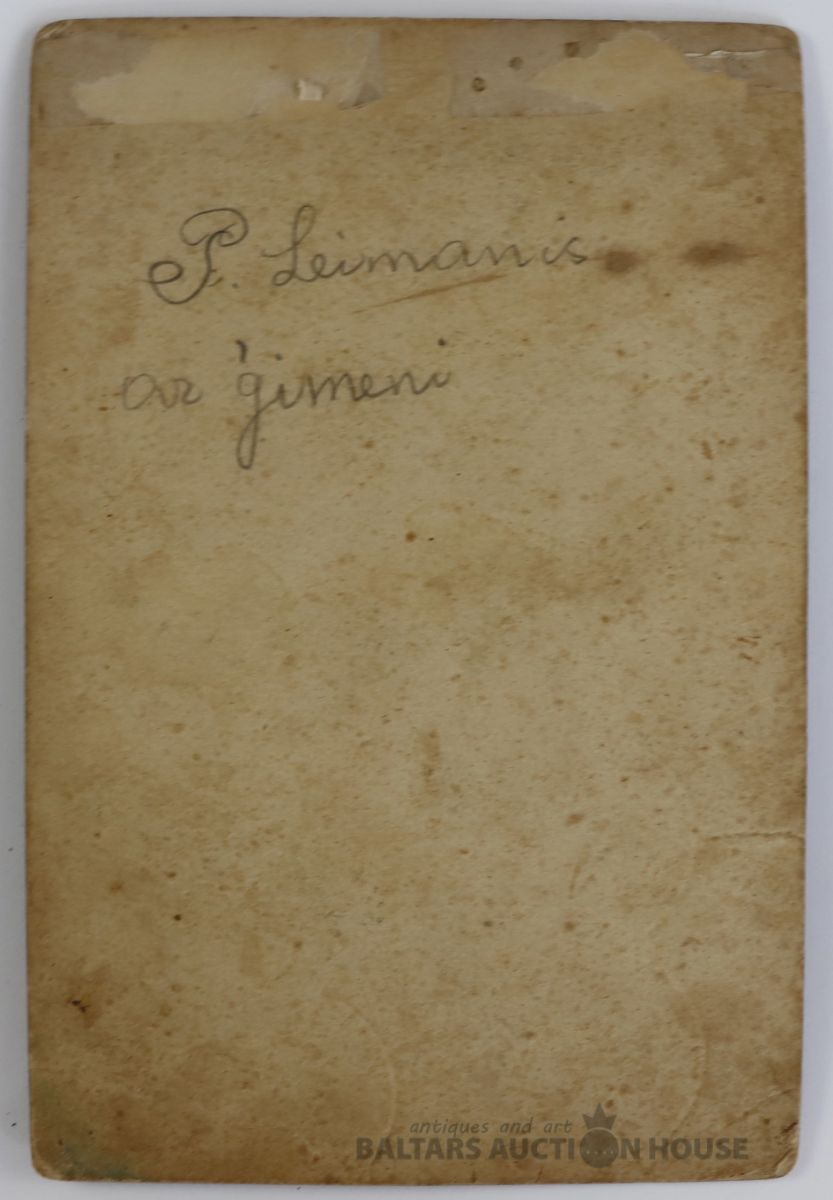 P. Leimanis
ar ģimeni
antiques and art
BALTARS AUCTION HOUSE